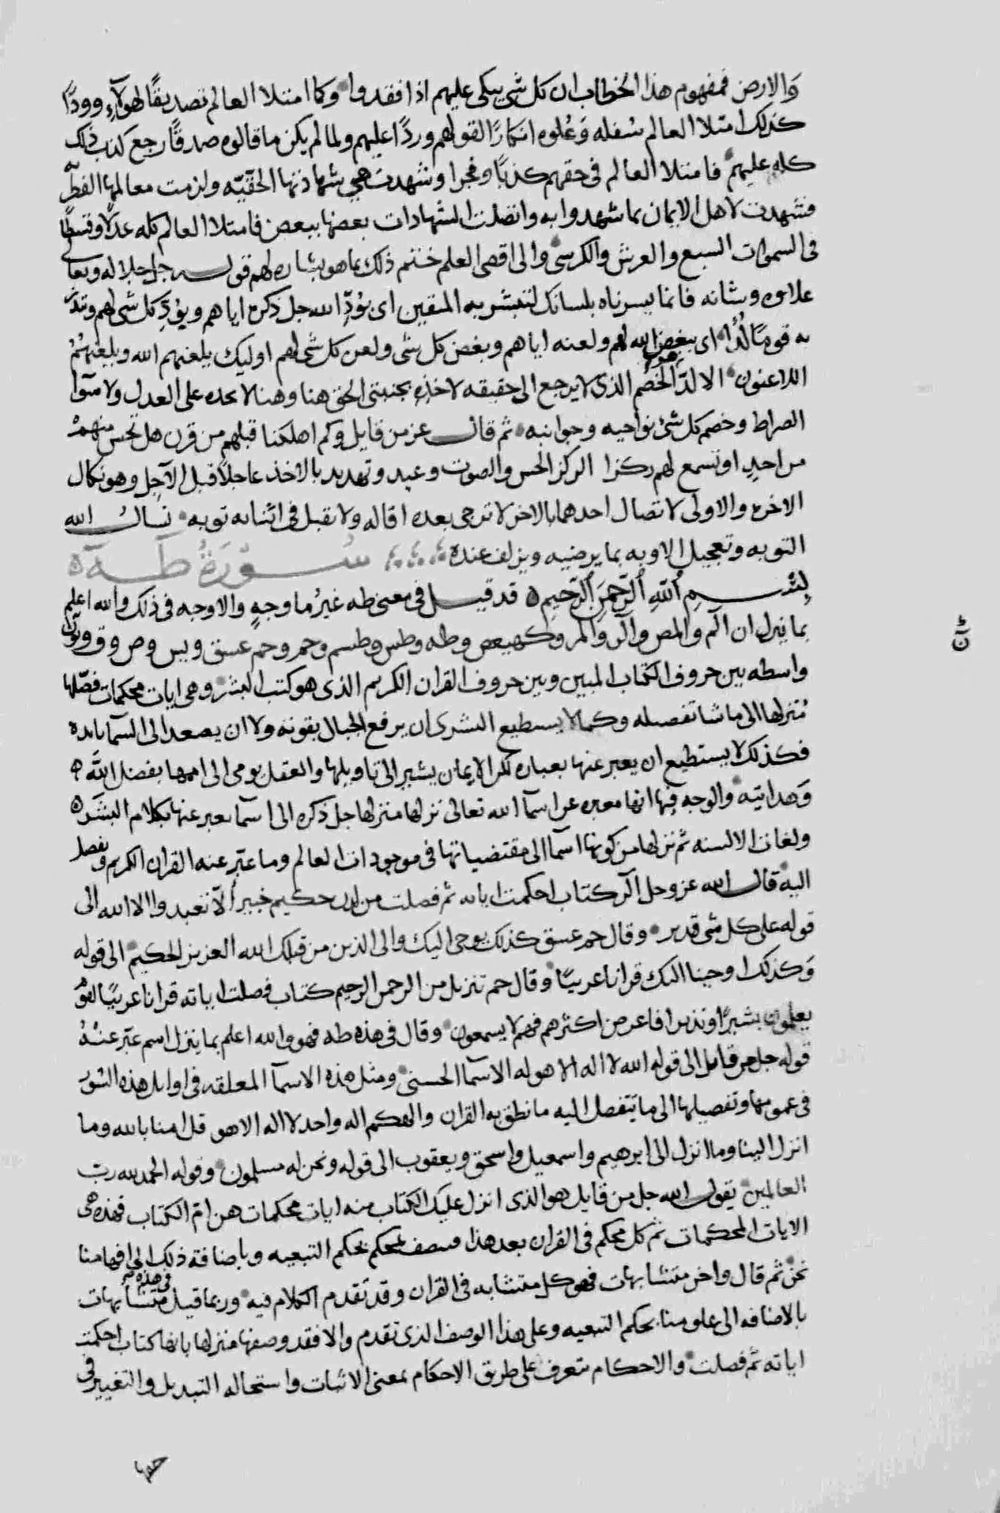 والارض فمفهوم هذا الخطاب ان كل شي يبكى عليهم اذا فقدوا وكما امتلا العالم تصديقًا لهولاء وودًا
كذلك امتلا العالم سفله وعلوه انكارًا لقولهم وردًا عليهم ولما لم يكن ما قالوه صدقًا رجع كذب ذلك
كله عليهم فامتلا العالم فى حقهم كذبًا وفجرا وشهدت هي شهادتها الحقيّه ولزمت معالمها الفطر
فشهدت لاهل الايمان بما شهدوا به واتصلت الشهادات بعضها ببعض فامتلا العالم كله عدلا وقسطًا
فى السموات السبع والعرش والكرسى والى اقصى العلم ختم ذلك بما هو بشاره لهم قوله جل جلاله وتعالى
علاوه وشانه فانما يسرناه بلسانك لتبشر به المتقين اى بودّ الله جل ذكره اياهم وبودّ كل شى لهم وتنذر
به قومًا لُدًا اى ببغض الله لهم ولعنه اياهم وبغض كل شى ولعن كل شى لهم اوليك يلعنهم الله ويلعنهم
اللاعنون الالدّ الخصم الذى لا يرجع الى حقيقه لاخذه بجنبتى الحق هنا وهنا لا تجده على العدل ولا سوا
الصراط وخصم كل شى نواحيه وجوانبه ثم قال عز من قايل وكم اهلكنا قبلهم من قرن هل تحس منهم
من احدٍ او تسمع لهم ركزا الركز الحس والصوت وعيد وتهديد بالاخذ عاجلا قبل الآجل وهو نكال
الاخره والاولى لاتصال احدهما بالاخر لا ترجى بعده اقاله ولا تقبل فى اثنايه توبه نسال الله
التوبه وتعجيل الاوبه بما يرضيه ويزلف عنده سُورَةُ طَهَ
بِسْمِ اللهِ الرَّحْمنِ الرَّحِيمِ قد قيل فى معنى طه غيرُ ما وجهٍ والاوجه فى ذلك والله اعلم
بما ينزل ان الم والمص والر والمر وكهيعص وطه وطس وطسم وحم وحم عسق ويس وص وق ون
واسطه بين حروف الكتاب المبين وبين حروف القران الكريم الذى هو كتب البشر وهى ايات محكمات فصّلها
مُنزلها الى ما شا تفصيله وكما لا يستطيع البشرى ان يرفع الجبال بقوته ولا ان يصعد الى السما بايده
فكذلك لا يستطيع ان يعبر عنها بعباره لكن الايمان يشير الى تاويلها والعقل يومى الى اممها بفضل الله
وهدايته والوجه فيها انها معبره عن اسما الله تعالى نزلها منزلها جل ذكره الى اسما يعبر عنها بكلام البشر
ولغات الالسنه ثم نزلها من كونها اسما الى مقتضياتها فى موجودات العالم وما عبّر عنه القران الكريم وفصل
اليه قال الله عز وجل الر كتاب احكمت اياته ثم فصلت من لدن حكيم خبير ألّا تعبدوا الا الله الى
قوله على كل شى قدير وقال حم عسق كذلك يوحى اليك والى الذين من قبلك الله العزيز الحكيم الى قوله
وكذلك اوحينا اليك قرانا عربيًا وقال حم تنزيل من الرحمن الرحيم كتاب فصلت اياته قرانا عربيًا لقوم
يعلمون بشيرًا ونذيرا فاعرض اكثرهم فهم لا يسمعون وقال فى هذه طه فهو والله اعلم بما ينزل اسم عبّر عنهُ
قوله جل من قايل الى قوله الله لا اله الا هو له الاسما الحسنى ومثل هذه الاسما المعلقه فى اوايل هذه السّور
فى عمومها وتفصيلها الى ما يتفصل اليه ما نطق به القران والهكم اله واحد لا اله الا هو قل امنا بالله وما
انزل الينا وما انزل الى ابرهيم واسمعيل واسحق ويعقوب الى قوله ونحن له مسلمون وقوله الحمد لله رب
العالمين يقول الله جل من قايل هو الذى انزل عليك الكتاب منه ايات محكمات هن ام الكتاب فهذه هى
الايات المحكمات ثم كل محكم فى القران بعد هذا بحكم التبعيه وباضافة ذلك الى افهامنا
نحن ثم قال واخر متشابهات فهو كل متشابه فى القران وقد تقدم الكلام فيه وربما قيل فى هذه متشابهات
بالاضافه الى علومنا بحكم التبعيه وعلى هذا الوصف الذى تقدم والا فقد وصفها منزلها بانها كتاب احكمت
اياته ثم فصلت والاحكام متعرف على طريق الاحكام بمعنى الاثبات واستحاله التبديل والتغيير فى